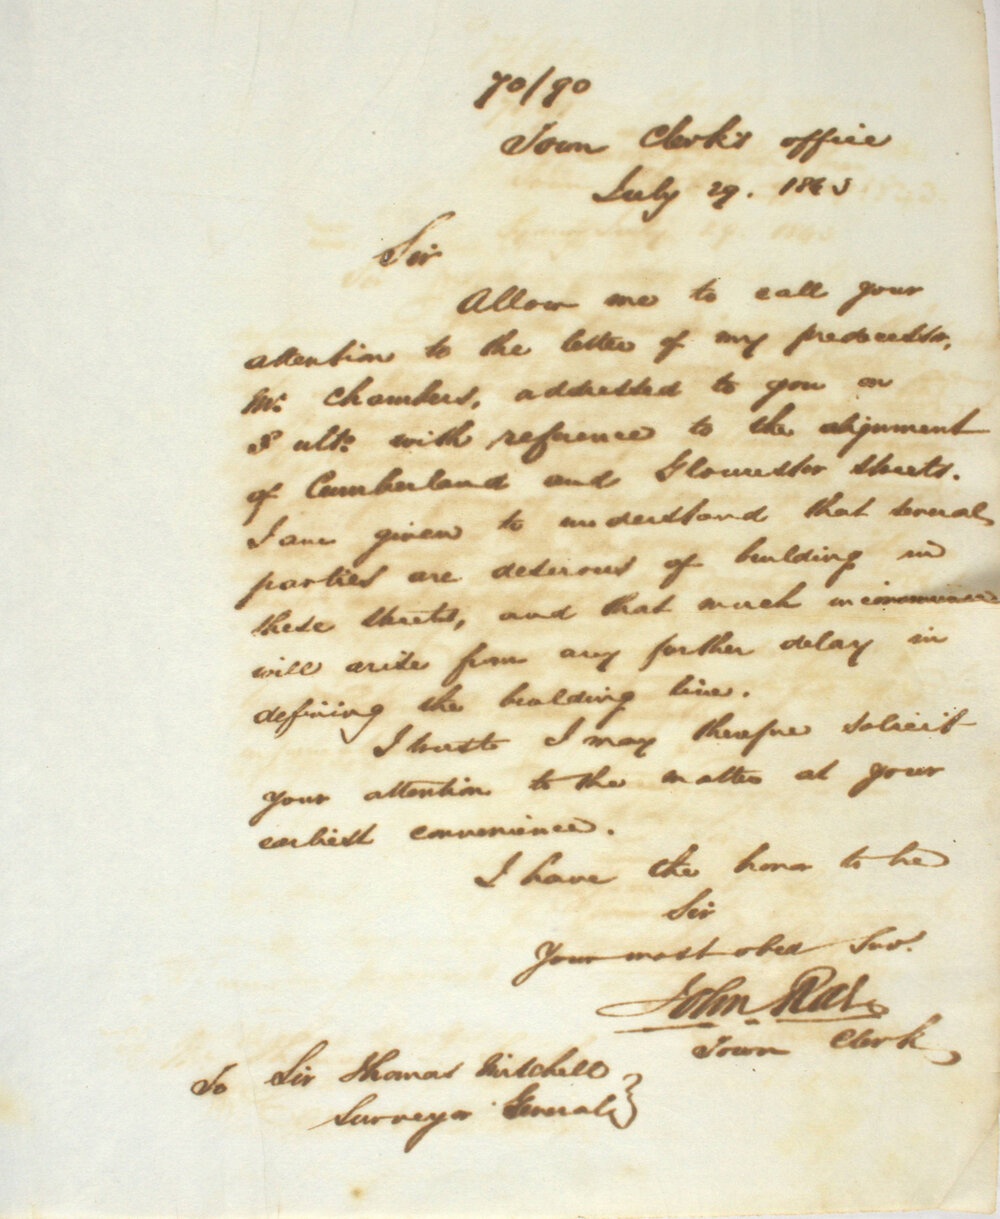 70/90
Town Clerk's office
July 29. 1843
Sir
Allow me to call your
attention to the letter of my predecessor,
Mr. Chambers, addressed to you on
8 ulto. with reference to the alignment
of Cumberland and Gloucester Streets.
I am given to understand that several
parties are desirous of building in
these streets, and that much inconvenience
will arise from any further delay in
defining the building line.
I trust I may therefore solicit
your attention to the matter at your
earliest convenience.
I have the honor to be
Sir
Your most obed Serv.
John Rae
Town Clerk
To Sir Thomas Mitchell
Surveyor General